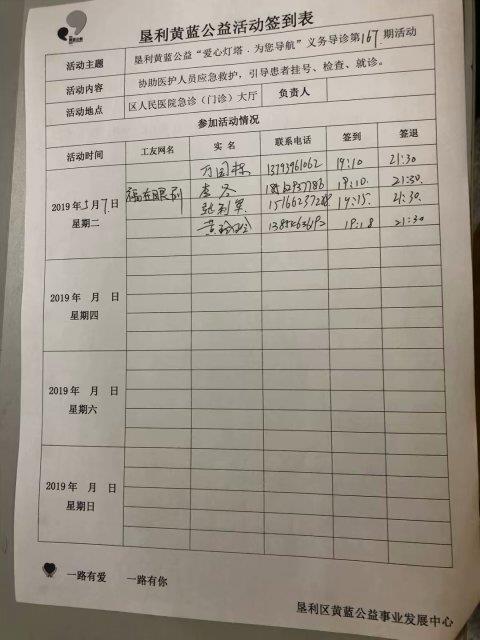 垦利黄蓝公益活动签到表
活动主题 垦利黄蓝公益“爱心灯塔．为您导航”义务导诊第167期活动
活动内容 协助医护人员应急救护，引导患者挂号、检查、就诊。
活动地点 区人民医院急诊（门诊）大厅 负责人
参加活动情况
活动时间 工友网名 实名 联系电话 签到 签退
万国栋 13793961062 19:10 21:30
2019年5月7日 19:10. 21:30.
星期二 张利军 19:15. 21:30.
19:18 21:30
2019年 月 日
星期四
2019年 月 日
星期六
2019年 月 日
星期日
一路有爱 一路有你
垦利区黄蓝公益事业发展中心